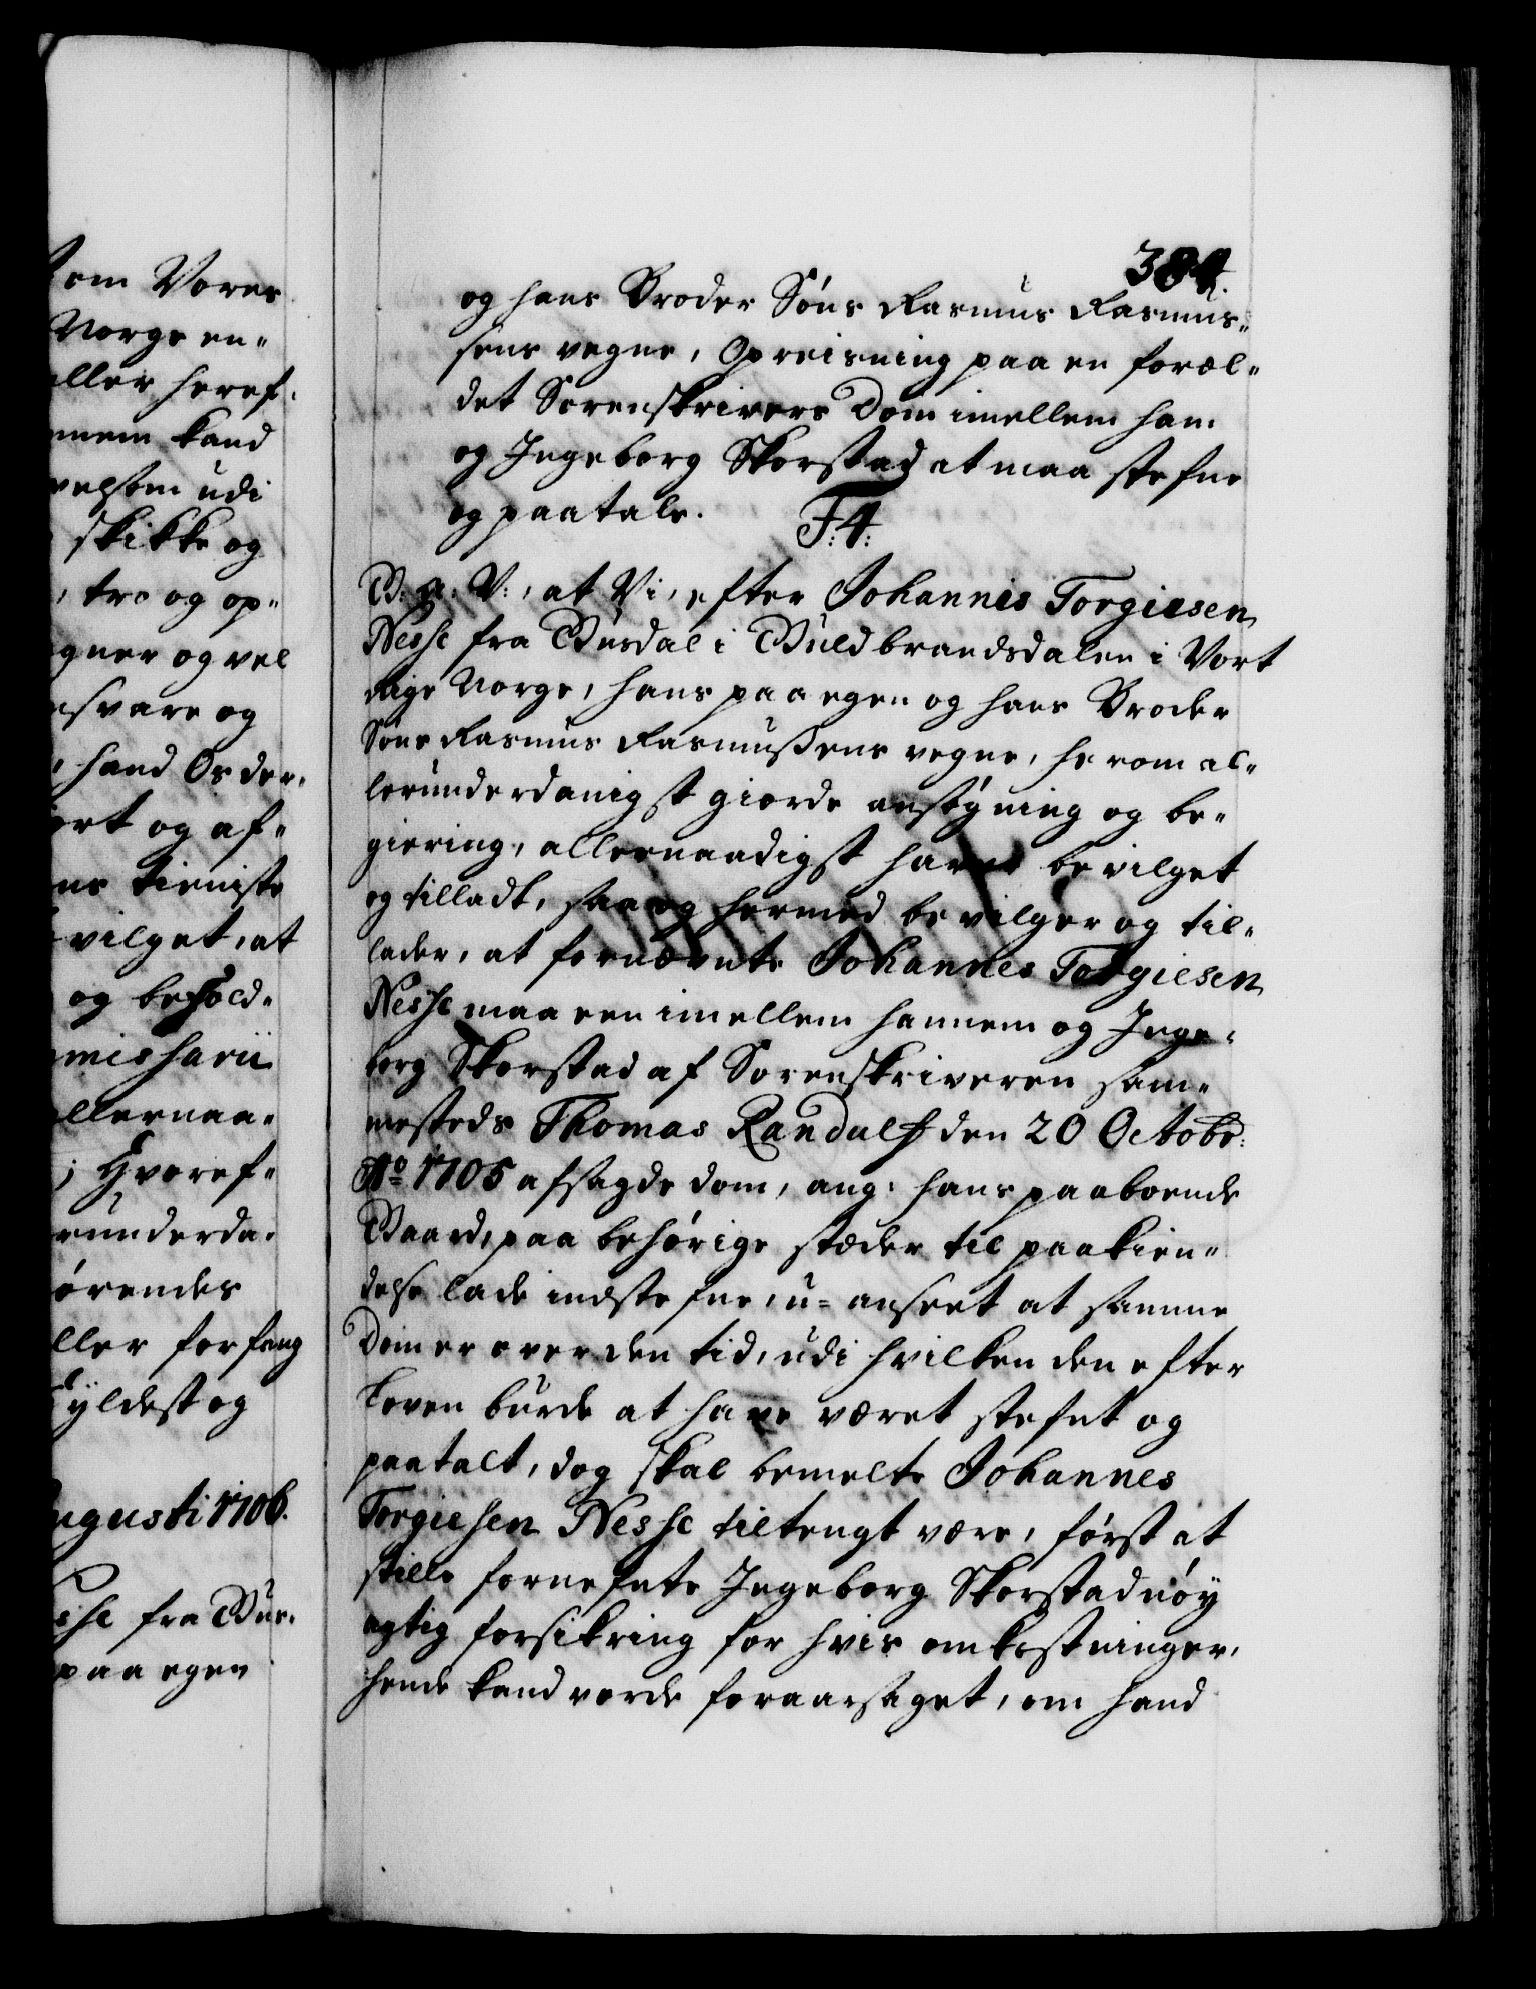 om Vores
Norge en-
eller heref-
nem kand
velsom udi
skikke og
, tro og op-
gner og vel
svare og
hand Os der-
ort og af-
ns tieniste
vilget, at
og behold-
missarii
llernaa-
; Hvoref-
runderda-
ørendes
ller forfang
yldest og
ugusti 1706.
sse fra Bus-
paa egen
384.
og hans Broder Søns Rasmus Rasmus-
sens vegne, Opreisning paa en foræl-
det Sorenskrivers Dom imellem ham
og Ingeborg Skorstad at maa stefne
og paatale.
F: 4:
G: A: V:, at Vi, efter Johannis Torgiesen
Nesse fra Busdal i Guldbrandsdalen i Vort
Rige Norge, hans paa egen og hans Broder
Søns Rasmus Rasmussens vegne, herom al-
lerunderdanigst giorde ansøgning og be-
giering, allernaadigst haver bevilget
og tilladt, saa og hermed bevilger og til-
lader, at fornævnte Johannes Torgiesen
Nesse maa een imellem hannem og Inge-
borg Skorstad af Sorenskriveren sam-
mesteds Thomas Randulf den 20 Octobr:
Ao 1705 afsagde dom, ang: hans paaboende
Gaard, paa behørige stæder til paakien-
delse lade indstefne, u-anseet at samme
Dom er over den tid, udi hvilken den efter
Loven burde at have været stefnt og
paatalt, dog skal bemelte Johannes
Torgiesen Nesse tiltengt være, først at
stille fornefnte Ingeborg Skorstad nøy
agtig forsikring for hvis omkostninger,
hende kand vorde foraarsaget, om hand